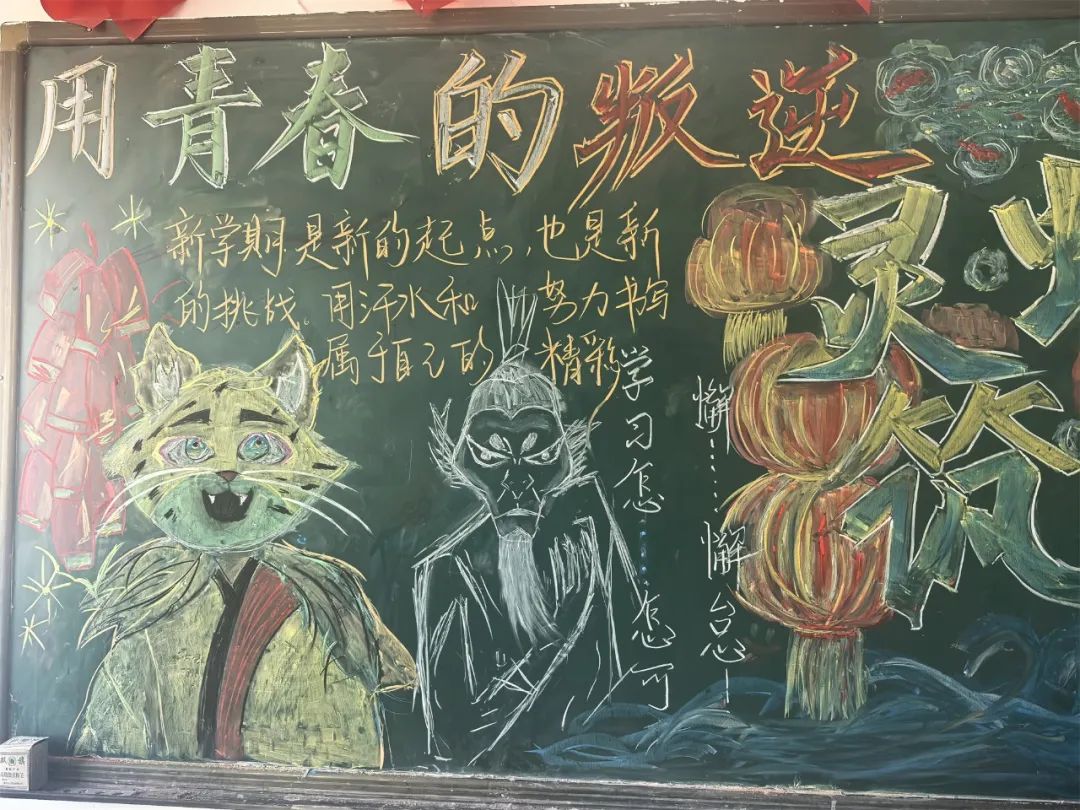 用青春的叛逆
灵
新学期是新的起点,也是新
的挑战。用汗水和 努力书写
属于自己的 精彩
学习怎……怎可
懈……懈怠—